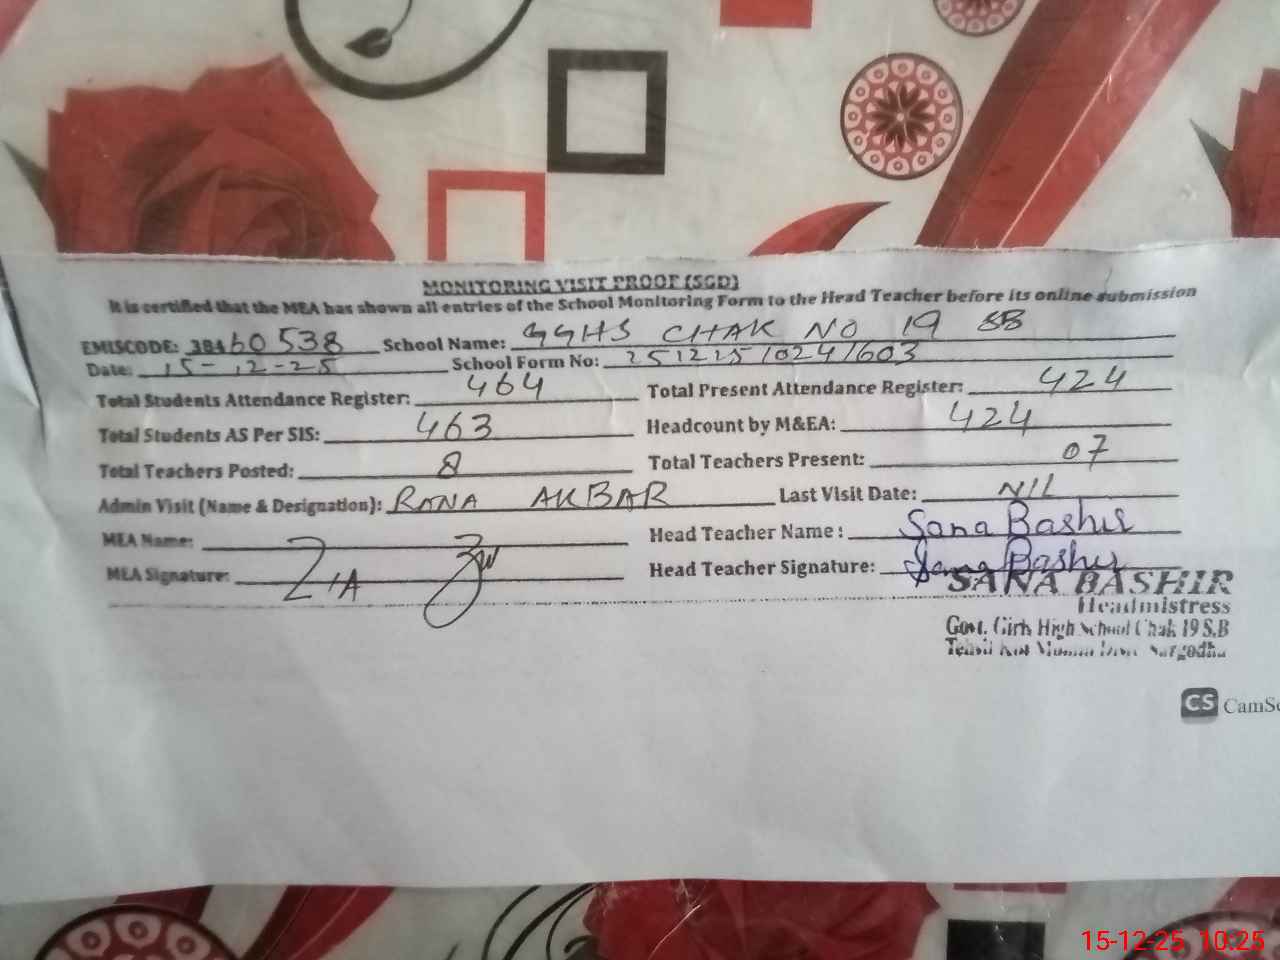 MONITORING VISIT PROOF (SGD)
It is certified that the MEA has shown all entries of the School Monitoring Form to the Head Teacher before its online submission
EMISCODE: 38460538 School Name: GGHS CHAK NO 19 SB
Date: 15-12-25 School Form No: 25121510241603
Total Students Attendance Register: 464 Total Present Attendance Register: 424
Total Students AS Per SIS: 463 Headcount by M&EA: 424
Total Teachers Posted: 8 Total Teachers Present: 07
Admin Visit (Name & Designation): RANA AKBAR Last Visit Date: NIL
MEA Name: ZIA Head Teacher Name: Sana Bashir
MEA Signature: Head Teacher Signature: Sana Bashir
SANA BASHIR
Headmistress
Govt. Girls High School Chak 19 S.B
Tehsil Kot Momin Distt. Sargodha
CS CamSc
15-12-25 10:25